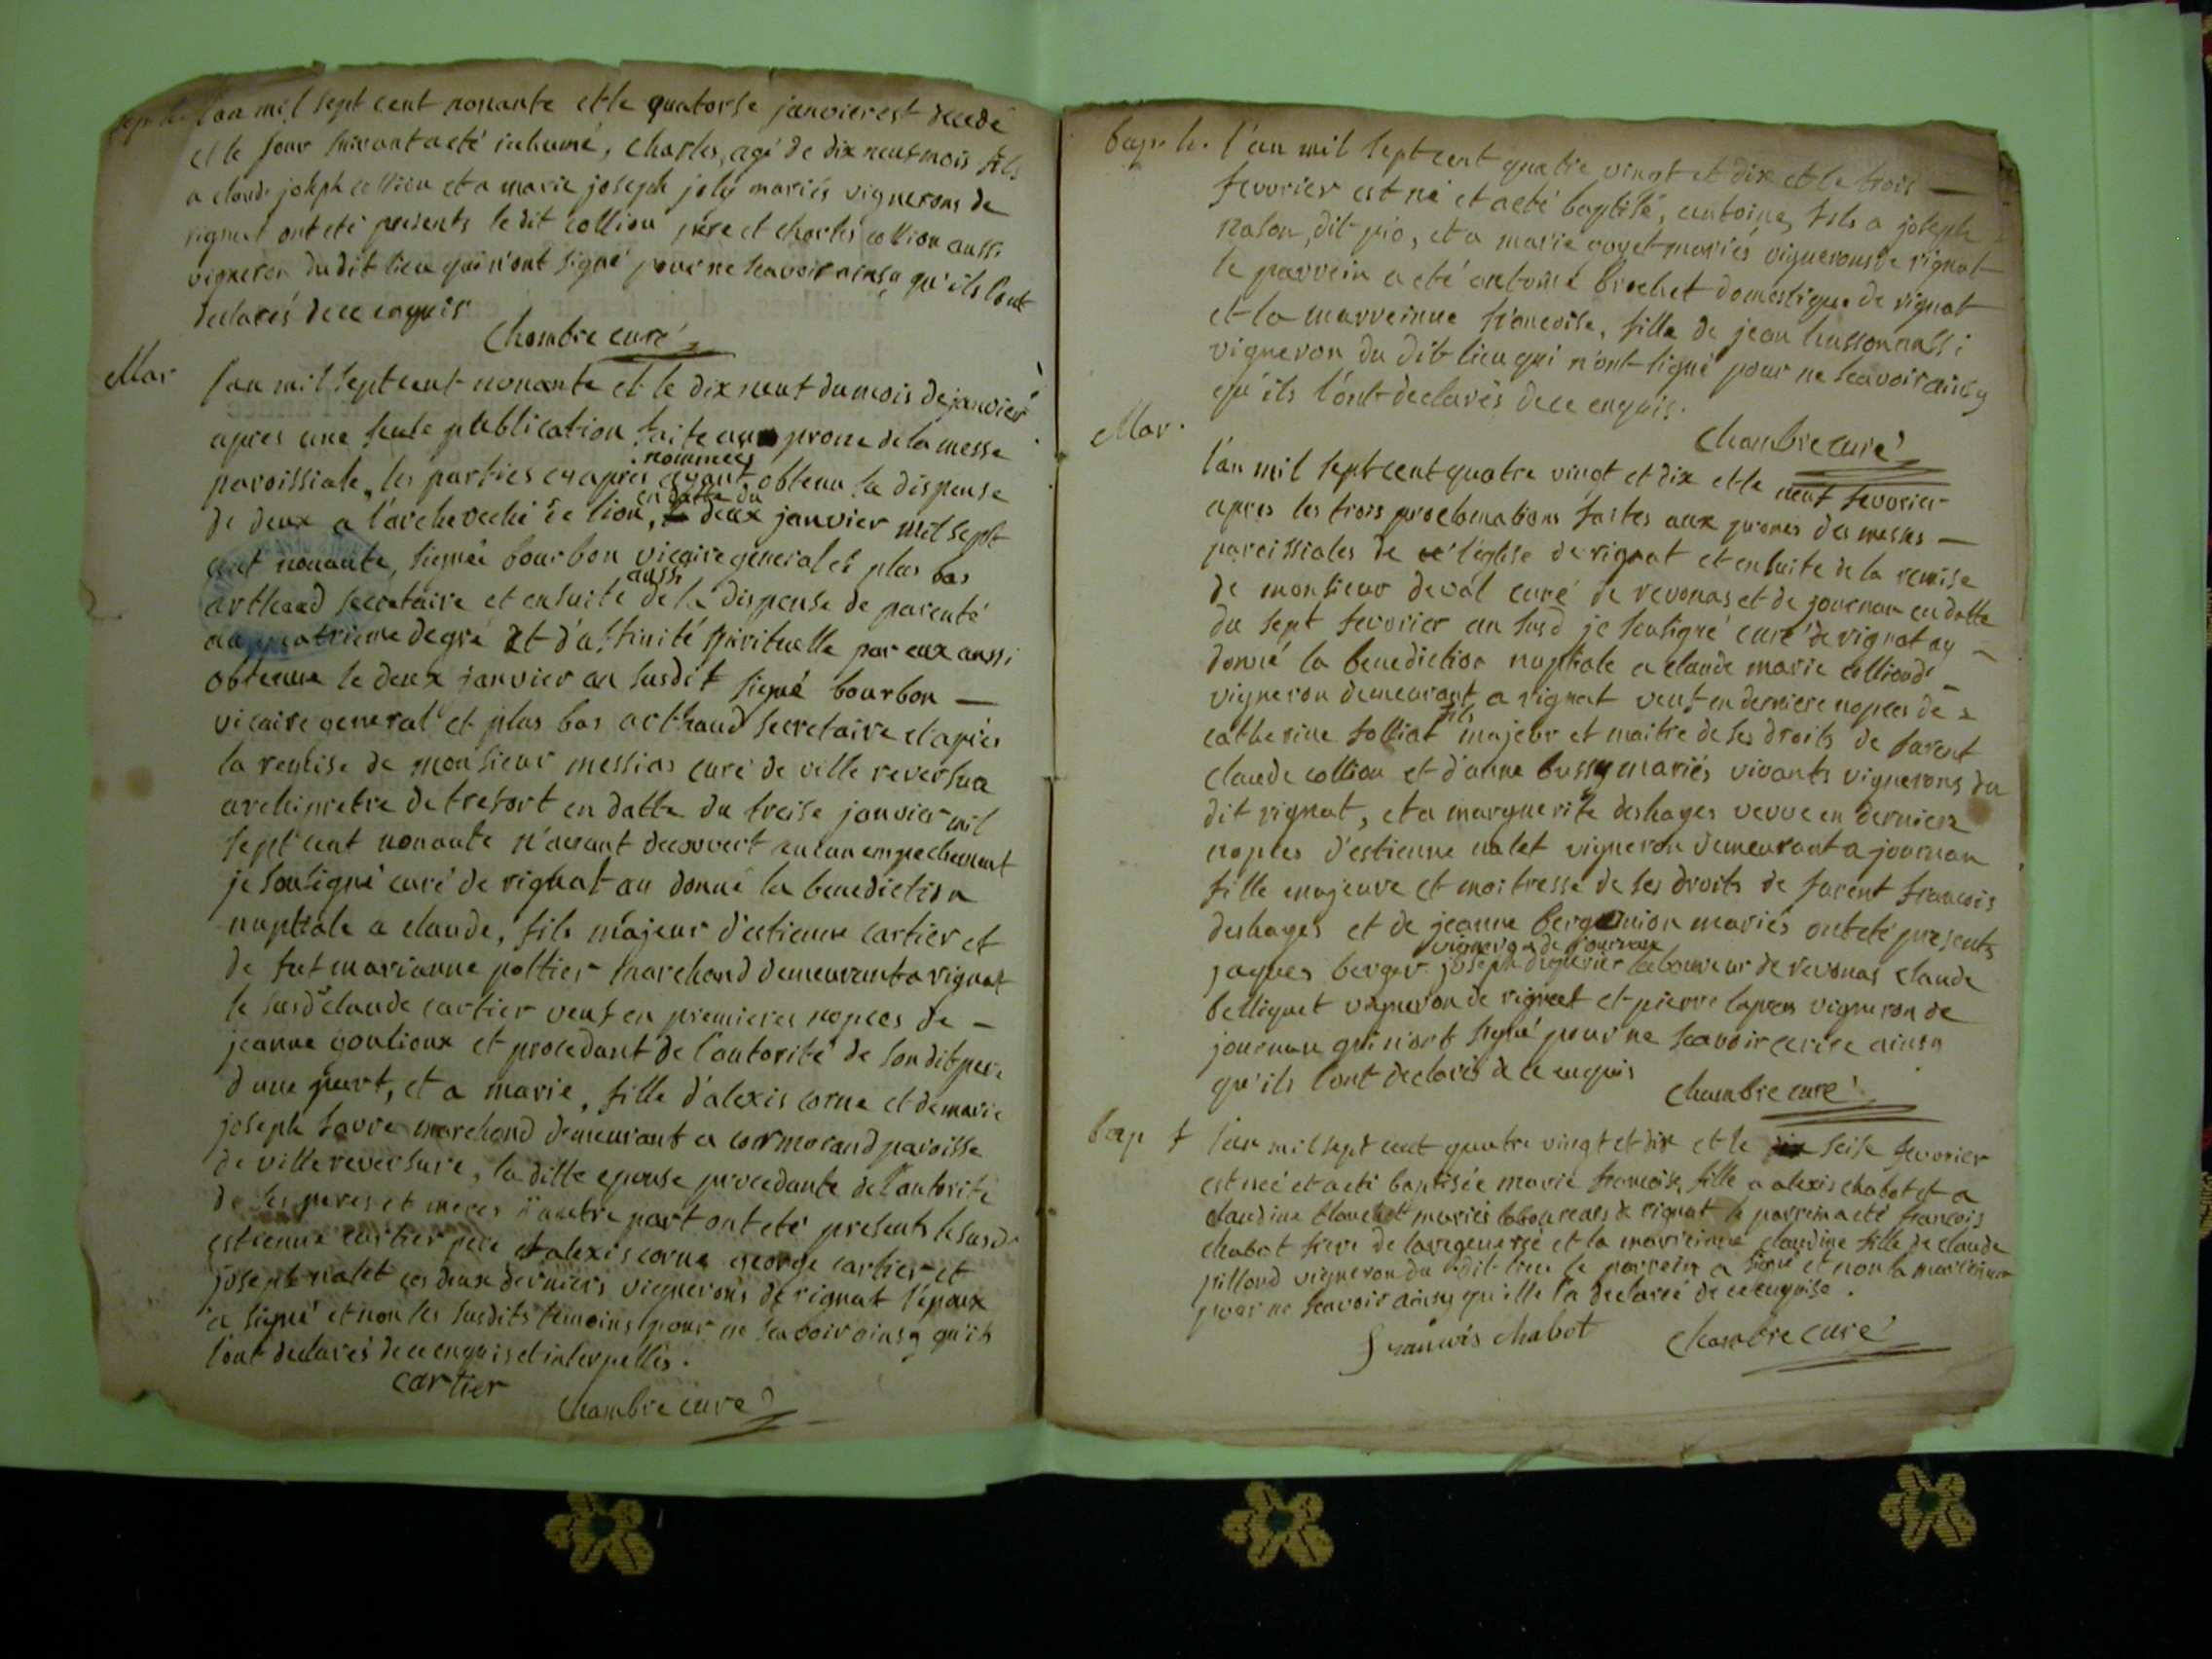 sep. h. l'an mil sept cent nonante et le quatorse janvier est decedé
et le jour suivant a eté inhumé, charles, agé de dix neuf mois fils
a claude joseph collion et a marie joseph joly mariés vignerons de
rignat ont eté presents le dit collion pére et charles collion aussi
vigneron du dit lieu qui n'ont signé pour ne scavoir ainsy qu'ils l'ont
declarés de ce enquis
Chambre curé
Mar
l'an mil sept cent nonante et le dix neuf du mois de janvier
apres une seule publication faite au prone de la messe
paroissiale, les parties cy apres nommées ayant obtenu la dispense
de deux a l'archeveché de lion, en datte du deux janvier mil sept
cent nonante, signée bourbon vicaire general et plus bas
arthaud secretaire et ensuite aussi de la dispense de parenté
au quatrieme degré et d'affinité spirituelle par eux aussi
obtenue le deux janvier an susdit signé bourbon —
vicaire general et plus bas arthaud secretaire et aprés
la remise de monsieur messias curé de ville reversure
archipretre de trefort en datte du treise janvier mil
sept cent nonante n'ayant decouvert aucun empechement
je soussigné curé de rignat ay donné la benediction
nuptiale a claude, fils majeur d'estienne cartier et
de fut marianne poltier marchand demeurant a rignat
le susd claude cartier veuf en premieres nopces de —
jeanne goulioux et procedant de l'autorité de son dit pere
d'une part, et a marie, fille d'alexis corne et de marie
joseph favre marchand demeurant a cormorand paroisse
de ville reversure, la ditte epouse procedante de l'autorité
de ses peres et meres d'autre part ont eté presents le susd
estienne cartier pére et alexis corne george cartier et
joseph nalet ces deux derniers vignerons de rignat l'epoux
a signé et non les susdits temoins pour ne scavoir ainsy qu'ils
l'ont declarés de ce enquis et interpellés.
cartier
Chambre curé
bap. h. l'an mil sept cent quatre vingt et dix et le trois —
fevrier est né et a eté baptisé, antoine, fils a joseph
nalon, dit pio, et a marie goyet mariés vignerons de rignat
le parrein a eté antoine brochet domestique de rignat
et la marreinne francoise, fille de jean husson aussi
vigneron du dit lieu qui n'ont signé pour ne scavoir ainsy
qu'ils l'ont declarés de ce enquis.
Chambre curé
Mar.
l'an mil sept cent quatre vingt et dix et le neuf fevrier
apres les trois proclamations faites aux prones des messes —
paroissiales de l'église de rignat et ensuite de la remise
de monsieur deval curé de revonas et de journan en datte
du sept fevrier an susd je soussigné curé de rignat ay —
donné la benediction nuptiale a claude marie colliond
vigneron demeurant a rignat veuf en derniere nopces de
catherine folliat fils majeur et maitre de ses droits de furent
claude collion et d'anne bussy mariés vivants vignerons du
dit rignat, et a marguerite deshayes veuve en derniere
nopces d'estienne nalet vigneron demeurant a journan
fille majeure et maitresse de ses droits de furent francois
deshayes et de jeanne bergonnion mariés ont eté presents
jaques berger vigneron de journan joseph laboureur de revonas claude
belliquet vigneron de rignat et pierre vigneron de
journan qui n'ont signé pour ne scavoir ecrire ainsy
qu'ils l'ont declarés de ce enquis
Chambre curé
bap f l'an mil sept cent quatre vingt et dix et le seise fevrier
est née et a eté baptisée marie francoise, fille a alexis chabot et a
claudine blanchet mariés laboureurs de rignat le parrein a eté francois
chabot frere de la et la marreinne claudine fille de claude
pilloud vigneron du dit lieu le parrein a signé et non la marreinne
pour ne scavoir ainsy qu'elle l'a declarée de ce enquise.
francois chabot
Chambre curé